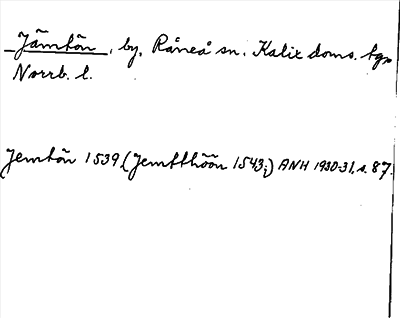 Jämtön, by, Råneå sn. Kalix doms. tgs
Norrb. l.
Jemtön 1539 (Jemtthöön 1543;) ANH 1930-31, s. 87.